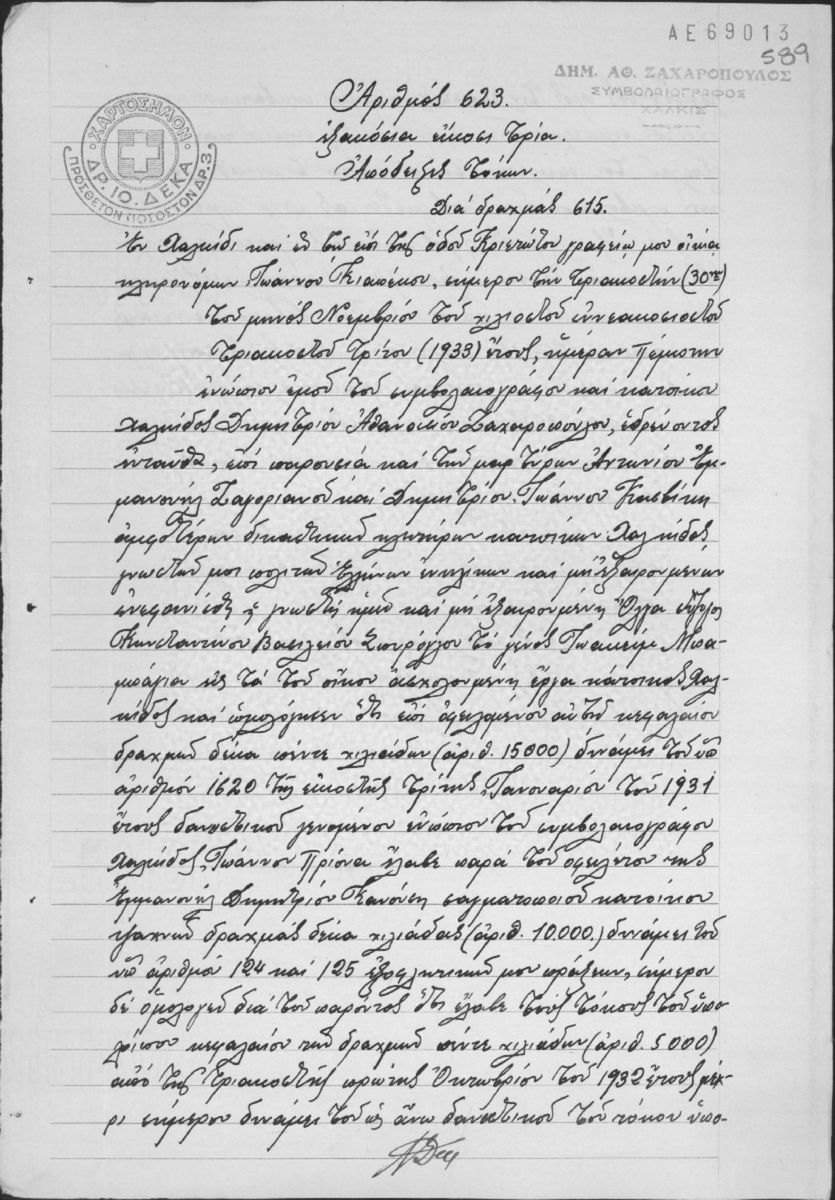 ΑΕ69013
589
ΔΗΜ. ΑΘ. ΖΑΧΑΡΟΠΟΥΛΟΣ
ΣΥΜΒΟΛΑΙΟΓΡΑΦΟΣ
ΧΑΛΚΙΣ
ΧΑΡΤΟΣΗΜΟΝ
ΔΡ. 10. ΔΕΚΑ
ΠΡΟΣΘΕΤΟΝ ΠΟΣΟΣΤΟΝ ΔΡ. 3
Ἀριθμός 623.
ἑξακόσια εἴκοσι τρία.
Ἀπόδειξις τόκων.
Διά δραχμάς 615.
Ἐν Χαλκίδι καί ἐν τῷ ἐπί τῆς ὁδοῦ Κριεζώτου γραφείῳ μου οἰκίᾳ
κληρονόμων Ἰωάννου, σήμερον τήν τριακοστήν (30ην)
τοῦ μηνός Νοεμβρίου τοῦ χιλιοστοῦ ἐννεακοσιοστοῦ
τριακοστοῦ τρίτου (1933) ἔτους, ἡμέραν Πέμπτην
ἐνώπιον ἐμοῦ τοῦ συμβολαιογράφου καί κατοίκου
Χαλκίδος Δημητρίου Ἀθανασίου Ζαχαροπούλου, ἑδρεύοντος
ἐνταῦθα, ἐπί παρουσίᾳ καί τῶν μαρτύρων Ἀντωνίου Ἐμ-
μανουήλ Ζαγοριανοῦ καί Δημητρίου Ἰωάννου
ἀμφοτέρων δικαστικῶν κλητήρων κατοίκων Χαλκίδος
γνωστῶν μοι πολιτῶν Ἑλλήνων ἐνηλίκων καί μή ἐξαιρουμένων
ἐνεφανίσθη ἡ γνωστή ἡμῖν καί μή ἐξαιρουμένη Ὄλγα σύζυγος
Κωνσταντίνου Βασιλείου τό γένος Ἰωακείμ Μπα-
εἰς τά τοῦ οἴκου ἀσχολουμένη ἔργα κάτοικος Χαλ-
κίδος καί ὡμολόγησεν ὅτι ἐπί ὀφειλομένου αὐτῇ κεφαλαίου
δραχμῶν δέκα πέντε χιλιάδων (ἀριθ. 15000) δυνάμει τοῦ ὑπ'
ἀριθμόν 1620 τῆς εἰκοστῆς τρίτης Ἰανουαρίου τοῦ 1931
ἔτους δανειστικοῦ γενομένου ἐνώπιον τοῦ συμβολαιογράφου
Χαλκίδος Ἰωάννου Πριόνα ἔλαβε παρά τοῦ ὀφειλέτου της
Ἐμμανουήλ Δημητρίου Κανούση σαγματοποιοῦ κατοίκου
Ψαχνῶν δραχμάς δέκα χιλιάδας (ἀριθ. 10.000.) δυνάμει τοῦ
ὑπ' ἀριθμόν 124 καί 125 ἐξοφλητικῶν μου πράξεων, σήμερον
δέ ὁμολογεῖ διά τοῦ παρόντος ὅτι ἔλαβε τούς τόκους τοῦ ὑπο-
λοίπου κεφαλαίου τῶν δραχμῶν πέντε χιλιάδων (ἀριθ. 5000)
ἀπό τῆς τριακοστῆς πρώτης Ὀκτωβρίου τοῦ 1932 ἔτους μέχ-
ρι σήμερον δυνάμει τοῦ ὡς ἄνω δανειστικοῦ τοῦ τόκου ὑπο-